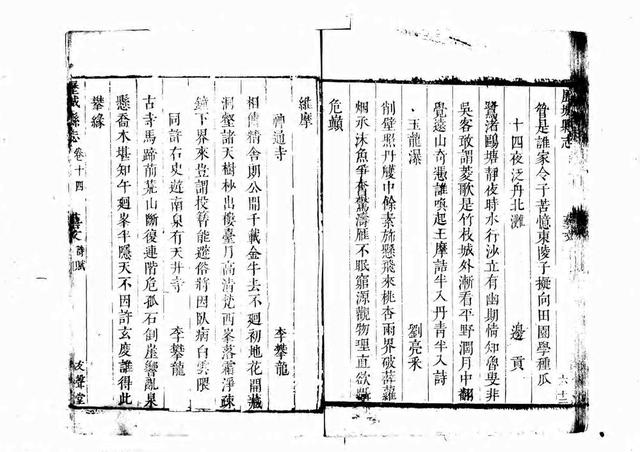 管是誰家令子苦憶東陵子擬向田園學種瓜
十四夜泛舟北灘 邊貢
鷺渚鷗塘靜夜時水行沙立有幽期情知魯叟非
吳客敢謂菱歌是竹枝城外漸看平野濶月中翻
覺遠山奇憑誰喚起王摩詰半入丹青半入詩
玉龍瀑 劉亮采
削壁照丹房中餘素斾懸飛來桃杏雨界破薜蘿
烟承沐魚爭奮驚濤雁不眠窮源觀物理直欲
危巔
維摩
神通寺 李攀龍
相傳精舍朗公開千載金牛去不廻初地花間藏
洞壑諸天樹杪出樓臺月高清梵西峯落霜淨疎
鐘下界來豈謂投簪能避俗將因臥病白雲隈
同許右史遊南泉有天井寺 李攀龍
古寺馬蹄前荒山斷復連階危孤石倒崖響亂泉
懸喬木堪知午廻峯半隱天不因許玄度誰得此
攀緣
歷城縣志 卷十四 藝文 詩賦 友聲堂